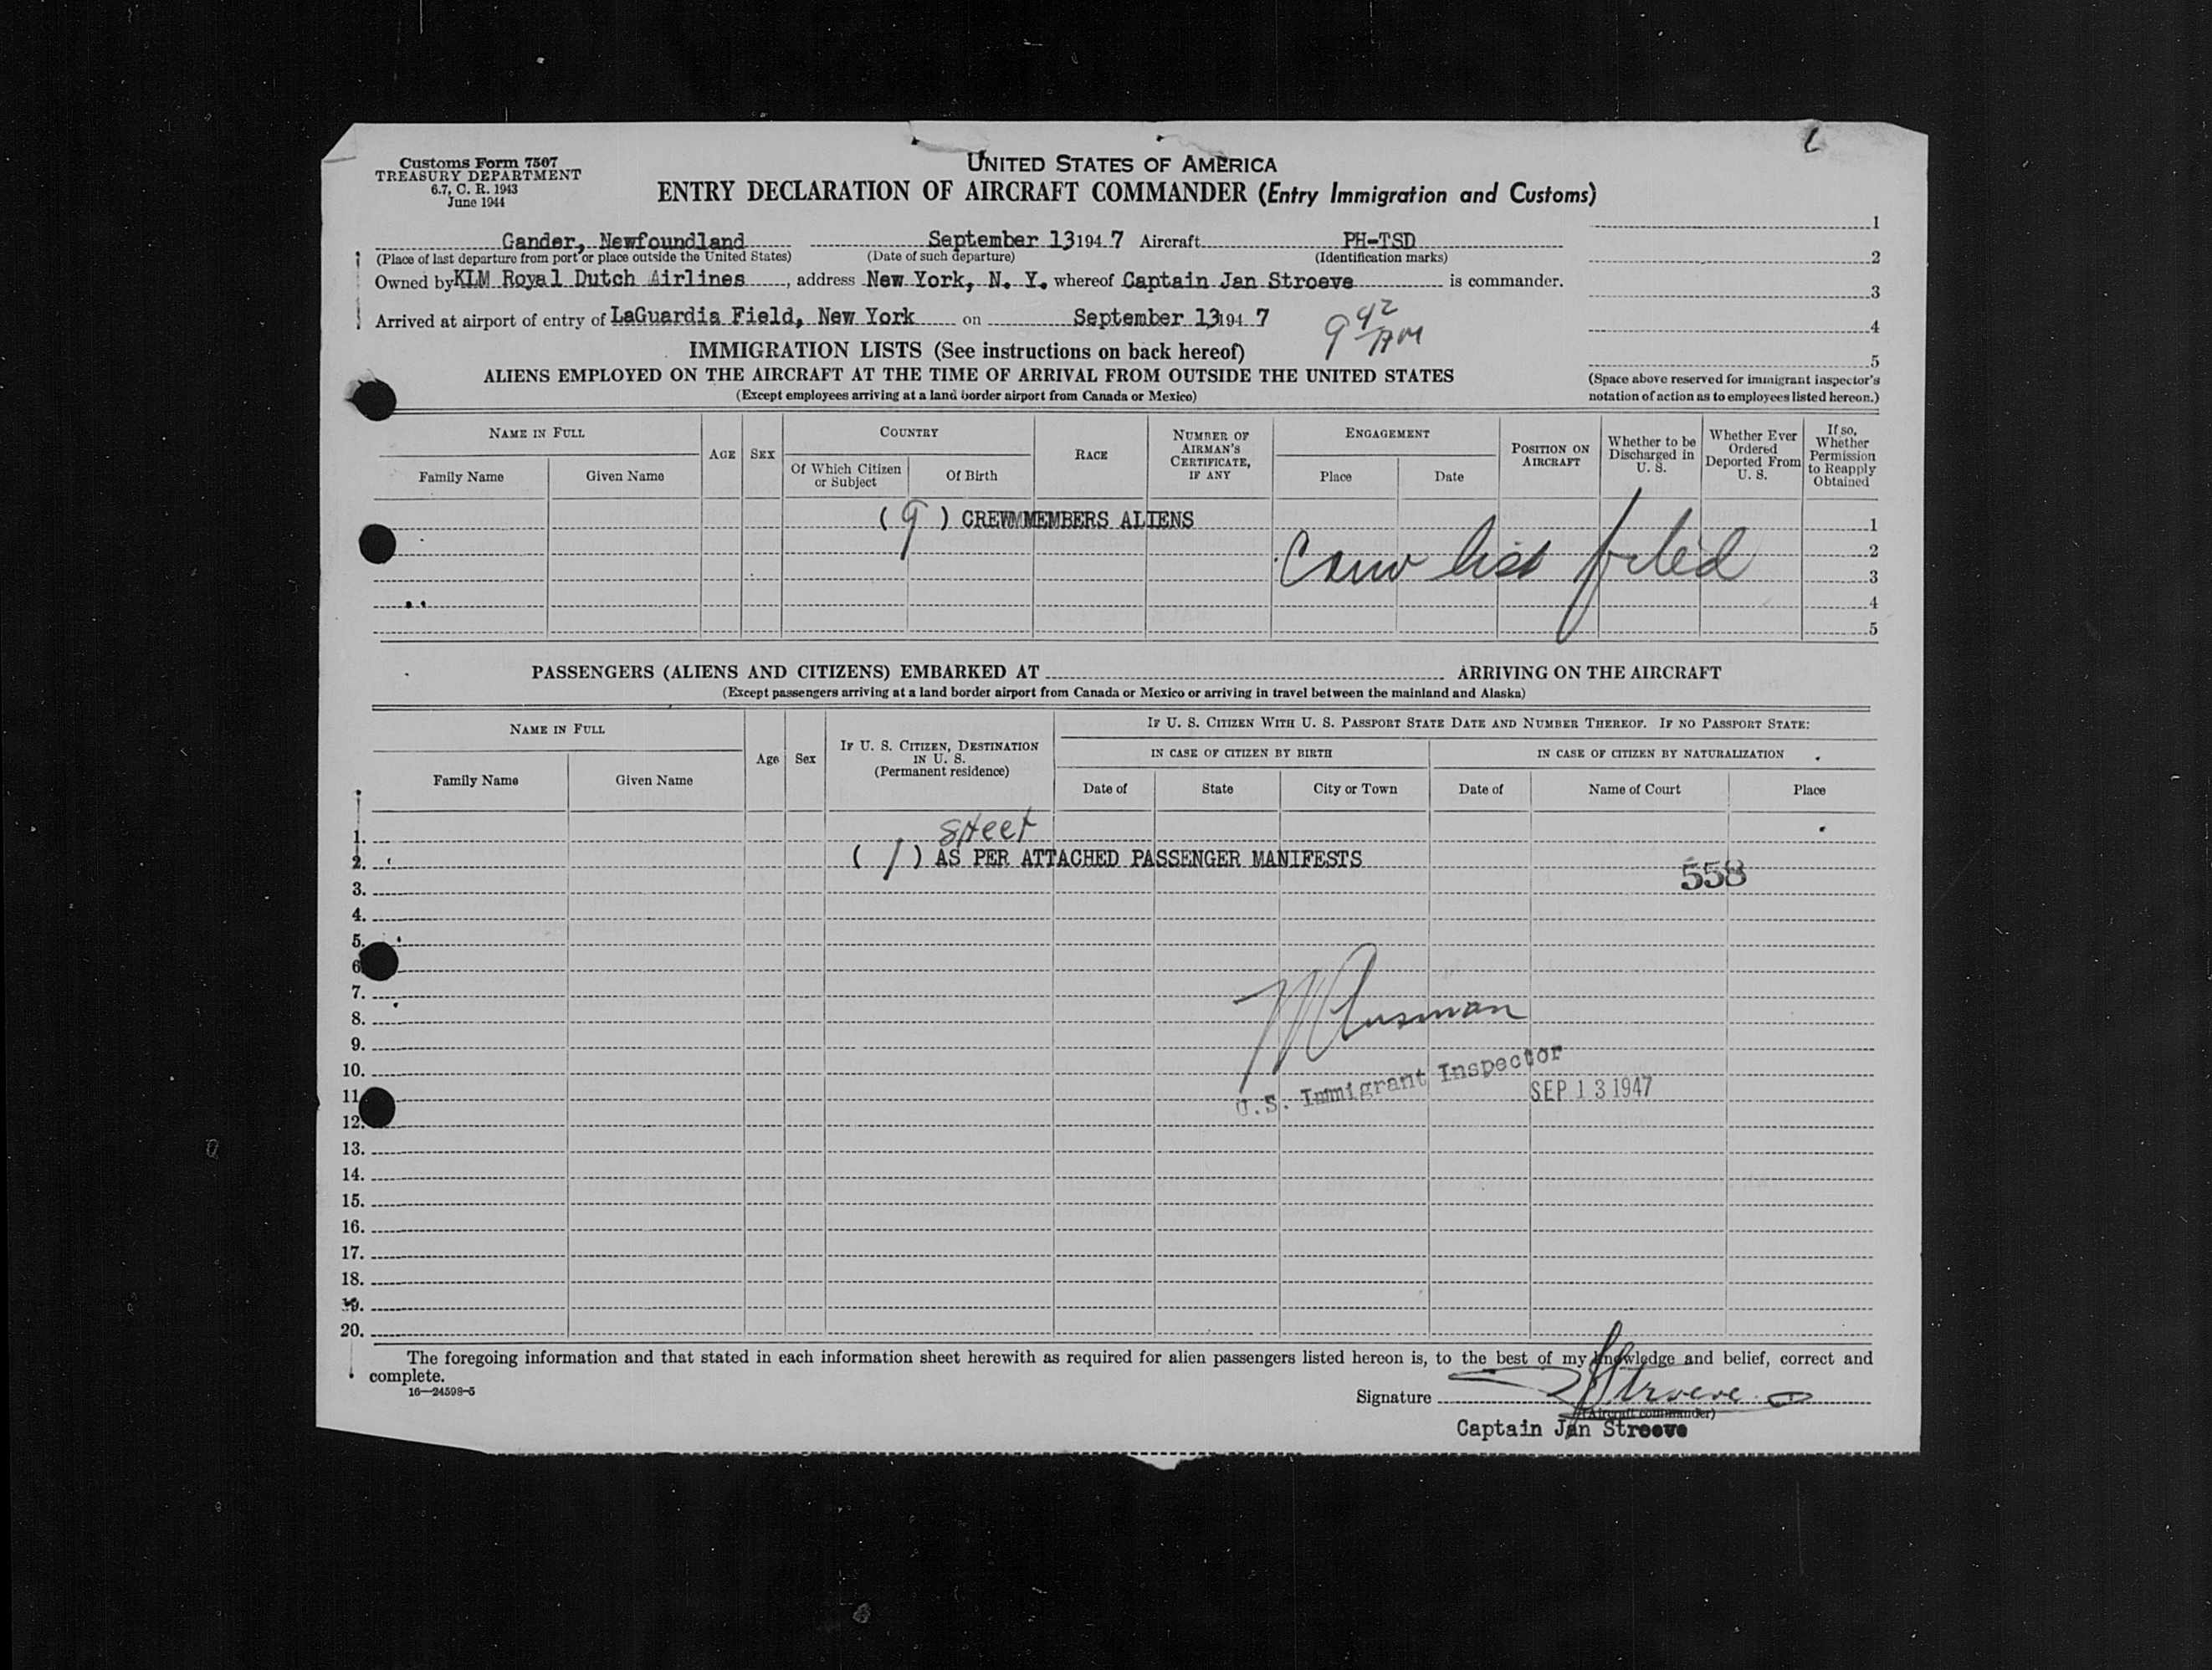 Customs Form 7507
TREASURY DEPARTMENT
6.7, C. R. 1943
June 1944
UNITED STATES OF AMERICA
ENTRY DECLARATION OF AIRCRAFT COMMANDER (Entry Immigration and Customs)
Gander, Newfoundland September 13 194 7 Aircraft PH-TSD
(Place of last departure from port or place outside the United States) (Date of such departure) (Identification marks)
Owned by KLM Royal Dutch Airlines, address New York, N. Y. whereof Captain Jan Stroeve is commander.
Arrived at airport of entry of LaGuardia Field, New York on September 13 194 7
9 42 AM
1
2
3
4
5
(Space above reserved for immigrant inspector's
notation of action as to employees listed hereon.)
IMMIGRATION LISTS (See instructions on back hereof)
ALIENS EMPLOYED ON THE AIRCRAFT AT THE TIME OF ARRIVAL FROM OUTSIDE THE UNITED STATES
(Except employees arriving at a land border airport from Canada or Mexico)
NAME IN FULL
Family Name
Given Name
AGE
SEX
COUNTRY
Of Which Citizen
or Subject
Of Birth
RACE
NUMBER OF
AIRMAN'S
CERTIFICATE,
IF ANY
ENGAGEMENT
Place
Date
POSITION ON
AIRCRAFT
Whether to be
Discharged in
U. S.
Whether Ever
Ordered
Deported From
U. S.
If so,
Whether
Permission
to Reapply
Obtained
( 9 ) CREWMMEMBERS ALIENS 1
2
Crew list filed 3
4
5
PASSENGERS (ALIENS AND CITIZENS) EMBARKED AT ARRIVING ON THE AIRCRAFT
(Except passengers arriving at a land border airport from Canada or Mexico or arriving in travel between the mainland and Alaska)
NAME IN FULL
Family Name
Given Name
Age
Sex
IF U. S. CITIZEN, DESTINATION
IN U. S.
(Permanent residence)
IF U. S. CITIZEN WITH U. S. PASSPORT STATE DATE AND NUMBER THEREOF. IF NO PASSPORT STATE:
IN CASE OF CITIZEN BY BIRTH
IN CASE OF CITIZEN BY NATURALIZATION
Date of
State
City or Town
Date of
Name of Court
Place
1. sheet
2. ( 1 ) AS PER ATTACHED PASSENGER MANIFESTS
558
3.
4.
5.
6
7.
8.
9.
10.
U.S. Immigrant Inspector
SEP 13 1947
11
12.
13.
14.
15.
16.
17.
18.
19.
20.
The foregoing information and that stated in each information sheet herewith as required for alien passengers listed hereon is, to the best of my knowledge and belief, correct and
complete.
16—24598-5
Signature JStroeve
(Aircraft commander)
Captain Jan Stroeve